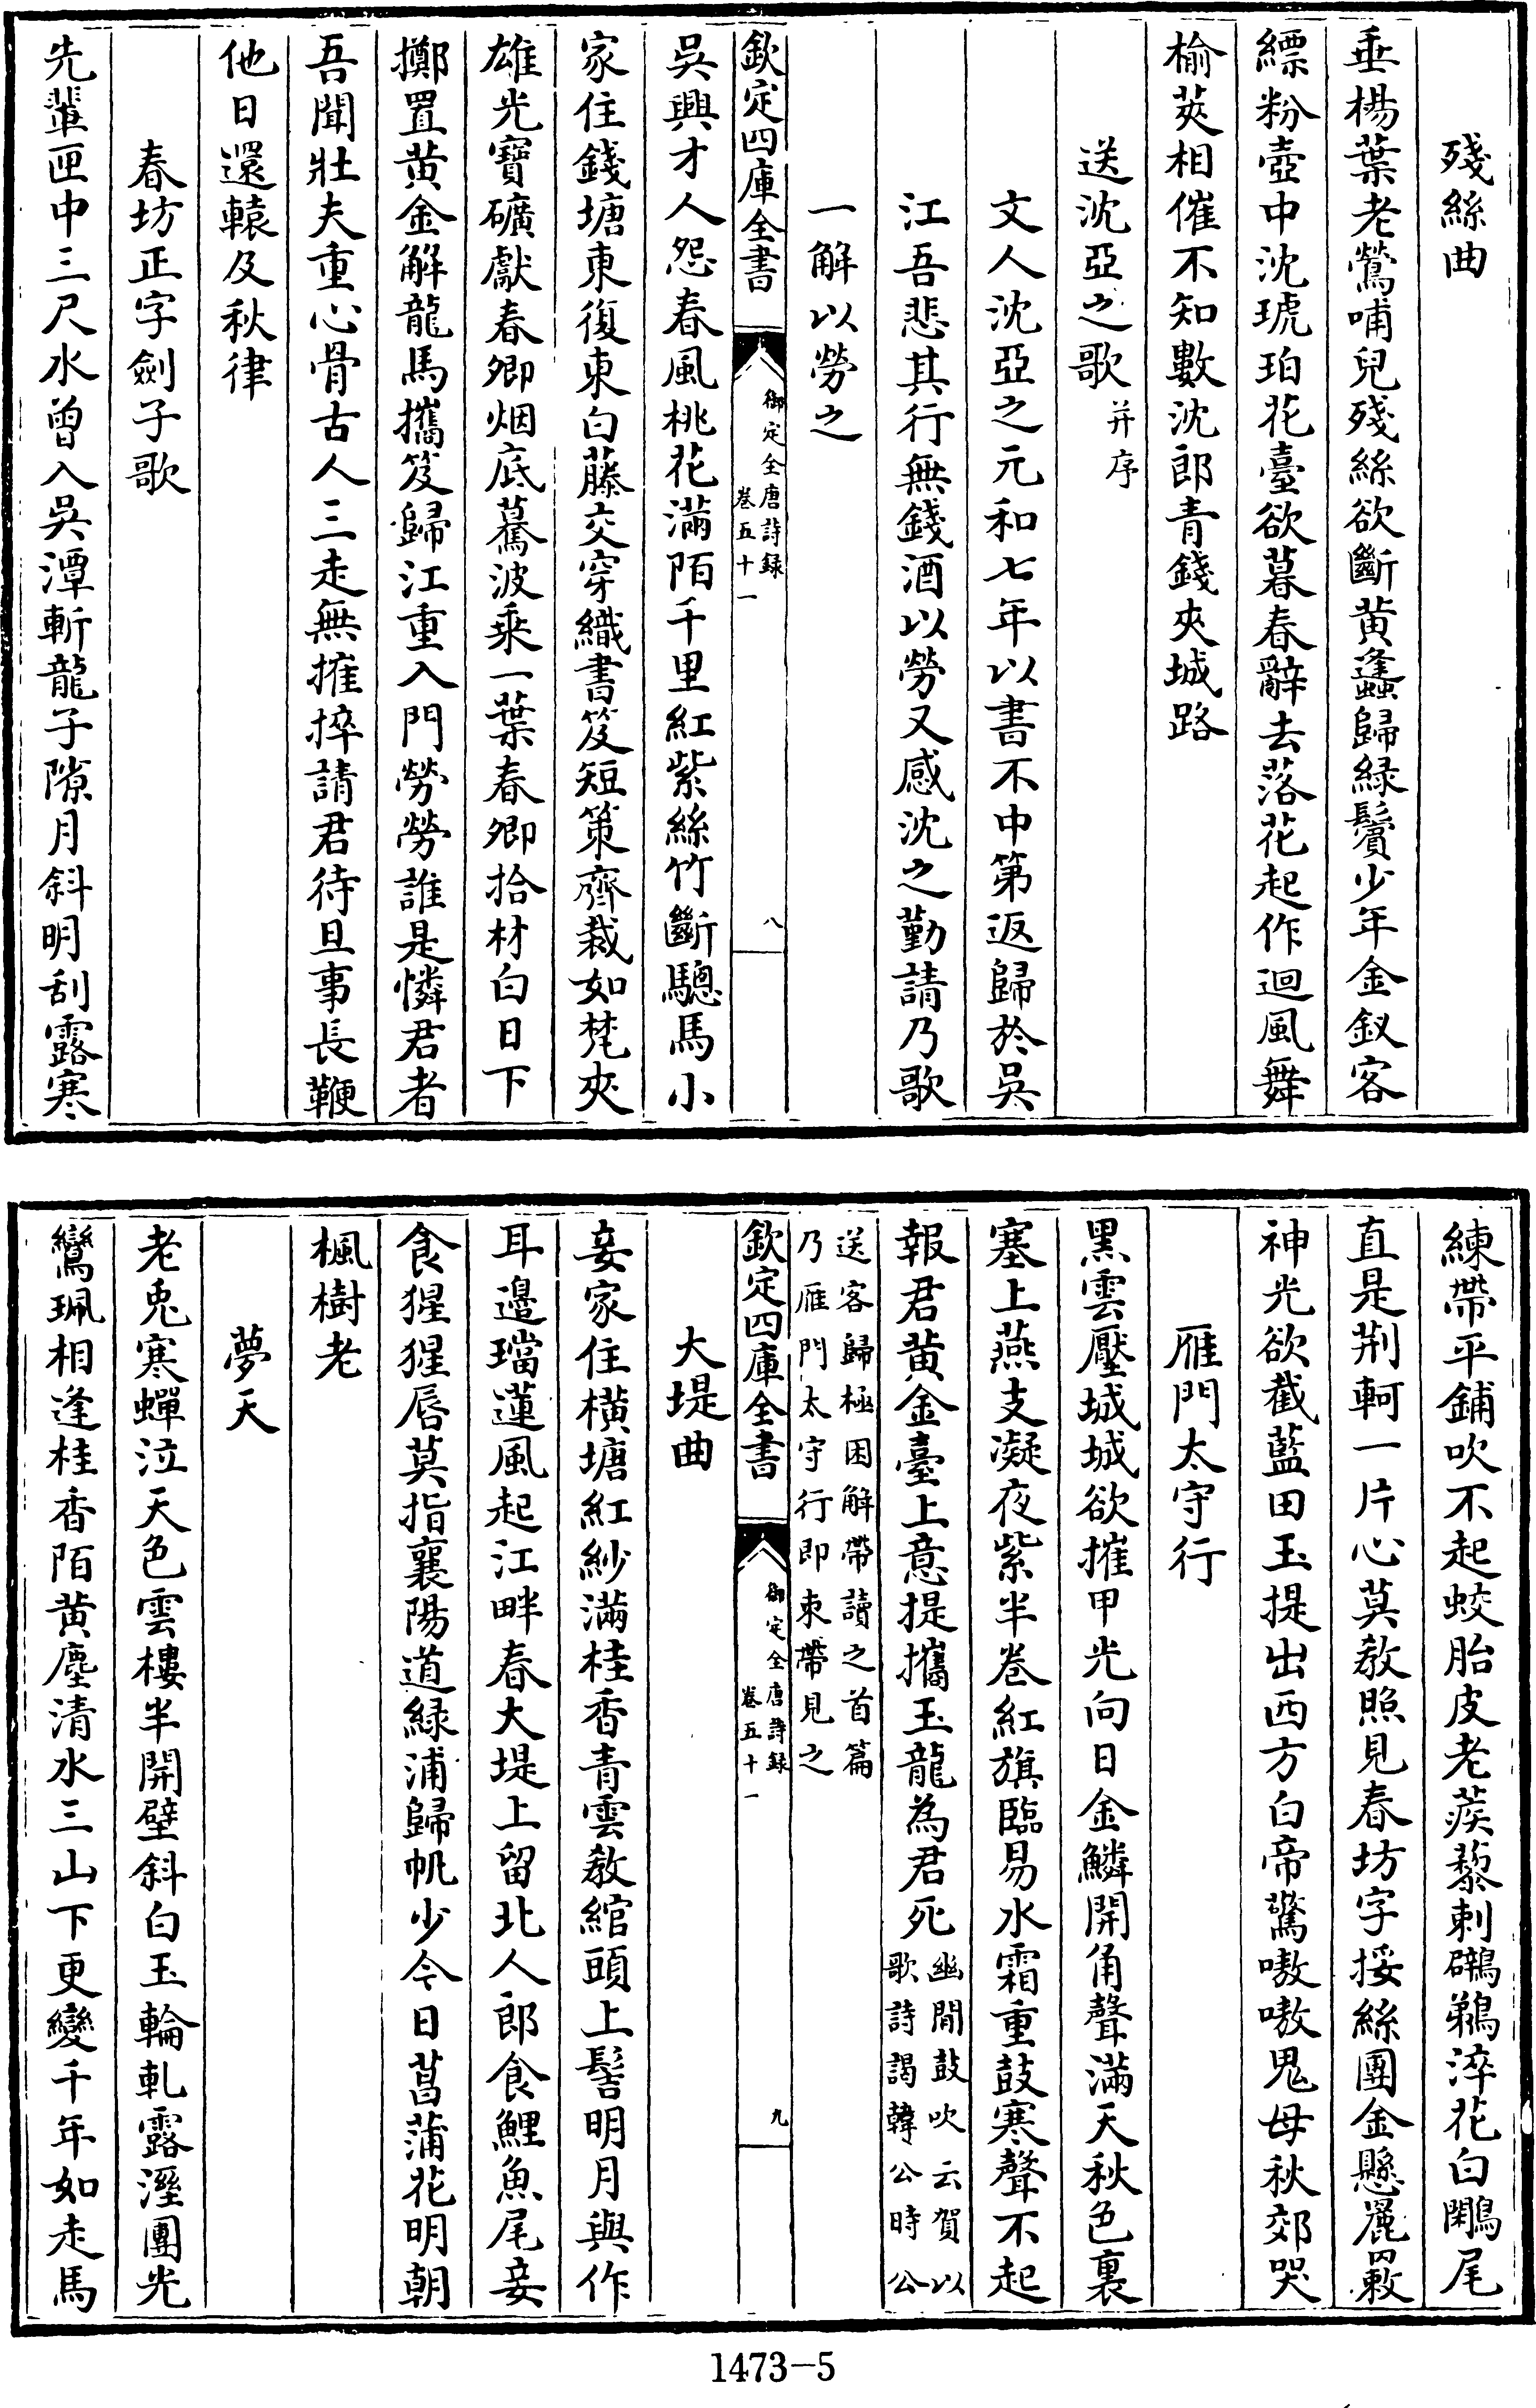 殘絲曲
垂楊葉老鶯哺兒殘絲欲斷黄蠭歸緑鬢少年金釵客
縹粉壺中沈琥珀花臺欲暮春辭去落花起作迴風舞
榆莢相催不知數沈郎青錢夾城路
送沈亞之歌并序
文人沈亞之元和七年以書不中第返歸於吳
江吾悲其行無錢酒以勞又感沈之勤請乃歌
一解以勞之
欽定四庫全書
御定全唐詩録
卷五十一
八
吳興才人怨春風桃花滿陌千里紅紫絲竹斷驄馬小
家住錢塘東復東白藤交穿織書笈短策齊裁如梵夾
雄光寶礦獻春卿烟底驀波乘一葉春卿拾材白日下
擲置黄金解龍馬攜笈歸江重入門勞勞誰是憐君者
吾聞壯夫重心骨古人三走無摧捽請君待旦事長鞭
他日還轅及秋律
春坊正字劍子歌
先輩匣中三尺水曾入吳潭斬龍子隙月斜明刮露寒
練帶平鋪吹不起蛟胎皮老蒺藜刺鸊鵜淬花白鷳尾
直是荆軻一片心莫教照見春坊字挼絲團金懸麗𦌉
神光欲截藍田玉提出西方白帝驚嗷嗷鬼母秋郊哭
雁門太守行
黒雲壓城城欲摧甲光向日金鱗開角聲滿天秋色裏
塞上燕支凝夜紫半卷紅旗臨易水霜重鼓寒聲不起
報君黄金臺上意提攜玉龍為君死
幽閒鼓吹云賀以
歌詩謁韓公時公
送客歸極困解帶讀之首篇
乃雁門太守行即束帶見之
欽定四庫全書
御定全唐詩録
卷五十一
九
大堤曲
妾家住橫塘紅紗滿桂香青雲教綰頭上髻明月與作
耳邉璫蓮風起江畔春大堤上留北人郎食鯉魚尾妾
食猩猩唇莫指襄陽道緑浦歸帆少今日菖蒲花明朝
楓樹老
夢天
老兎寒蟬泣天色雲樓半開壁斜白玉輪軋露溼團光
鸞珮相逢桂香陌黄塵清水三山下更變千年如走馬
1473-5